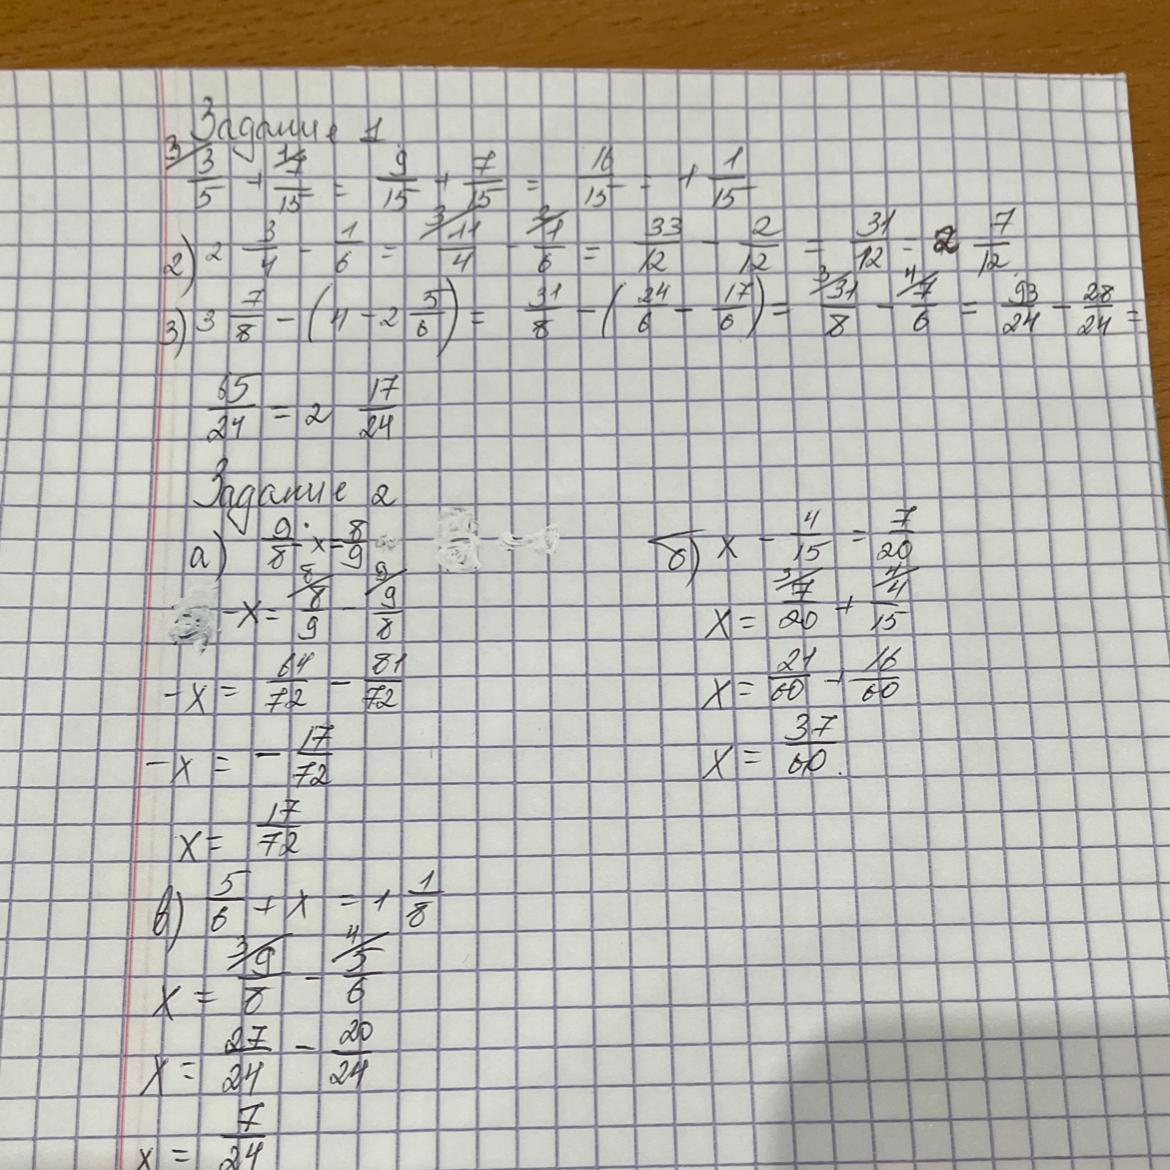 Задание 1
3/5 + 7/15 = 9/15 + 7/15 = 16/15 = 1 1/15
2) 2 3/4 - 1/6 = 11/4 - 1/6 = 33/12 - 2/12 = 31/12 = 2 7/12
3) 3 7/8 - (4 - 2 5/6) = 31/8 - (24/6 - 17/6) = 31/8 - 7/6 = 93/24 - 28/24 =
65/24 = 2 17/24
Задание 2
а) 9/8 - x = 8/9
-x = 8/9 - 9/8
-x = 64/72 - 81/72
-x = - 17/72
x = 17/72
б) x - 4/15 = 7/20
x = 7/20 + 4/15
x = 21/60 + 16/60
x = 37/60.
в) 5/6 + x = 1 1/8
x = 9/8 - 5/6
x = 27/24 - 20/24
x = 7/24